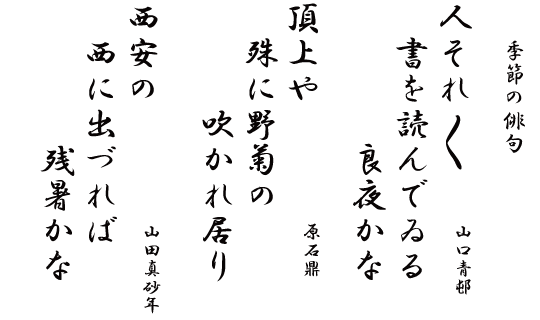 季節の俳句
人それ〱
書を読んでゐる
良夜かな
山口青邨
頂上や
殊に野菊の
吹かれ居り
原石鼎
西安の
西に出づれば
残暑かな
山田真砂年